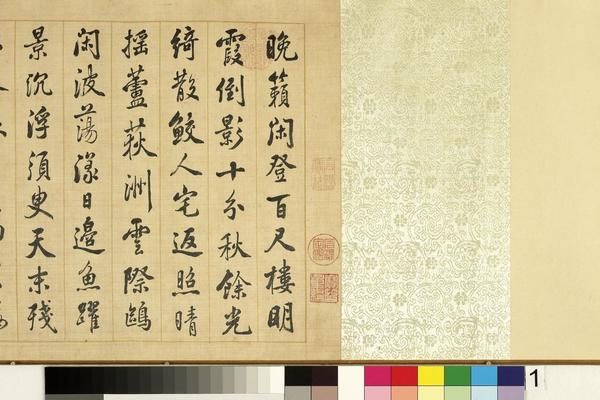 晚籟閑登百尺樓明
霞倒影十分秋餘光
綺散鮫人宅返照晴
搖蘆荻洲雲際鷗
閑波蕩漾日邊魚躍
景沉浮須臾天末殘
1